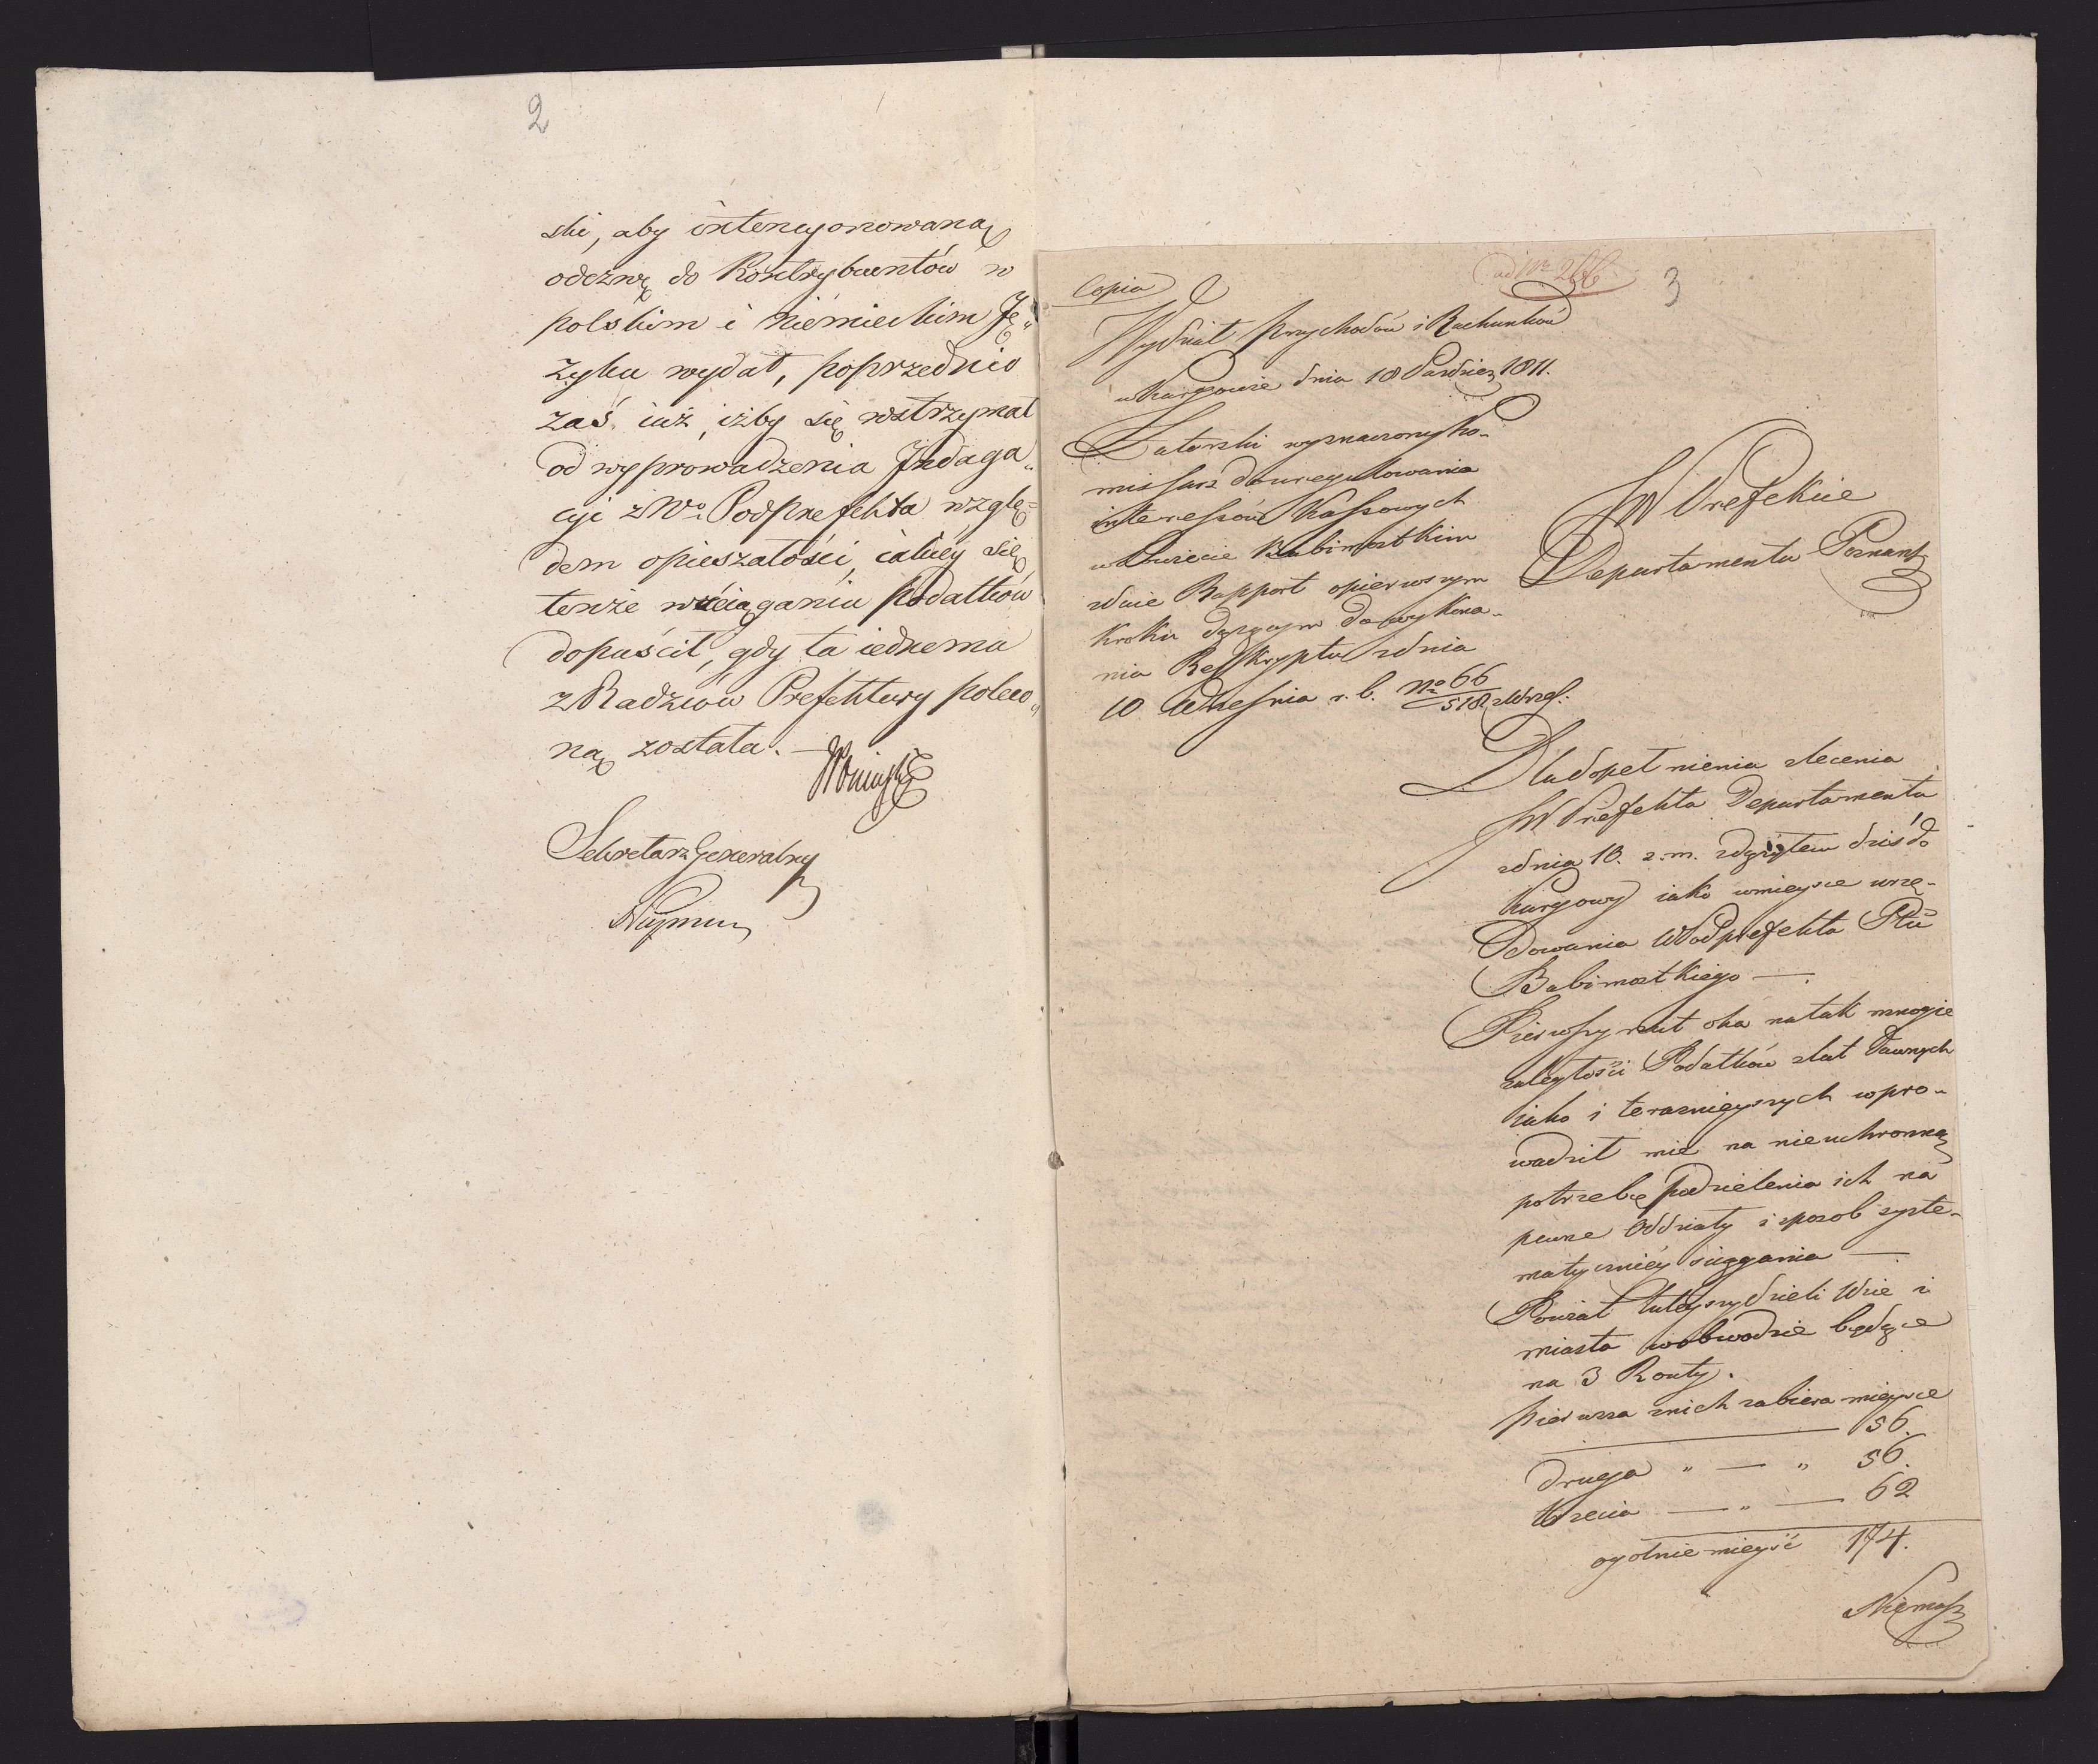 2
ski, aby intencyonowaną
odezwę do Kontrybuentów w
polskim i niémieckim Ję„
zyku wydał, poprzednio
zaś iuż, iżby się wstrzymał
od wyprowadzenia Indaga„
cyi z Wo. Podprefekta wzglę=
dem opieszałości, iakiey się
tenże w ściąganiu podatków
dopuścił, gdy ta iednemu
z Radzców Prefektury poleco„
ną została. —
Sekretarz Generalny
Copia
ad Nr. 266
3
Wydział Przychodów i Rachunków
w Kargowie dnia 18 Paździer 1811.
Zatorski wyznaczony Ko-
missarz do uregulowania
interessów Kassowych
w Powiecie Babimostkim
zdaie Rapport o pierwszym
Kroku dążącym do wykona-
nia Reskryptu z dnia
10 Września r. b. No 66
518
JW Prefekcie
Departamentu Poznań
Dla dopełnienia zlecenia
JW Prefekta Departamentu
z dnia 10. z. m. zdążyłem dziś do
Kargowy iako w mieysce urzę-
dowania WPodprefekta Ptu
Babimostkiego —.
Pierwszy rzut oka na tak mnogie
zaległości Podatków z lat dawnych
iako i teraznieyszych wpro-
wadził mię na nieuchronną
potrzebę podzielenia ich na
pewne Oddziały i sposób syste-
matyczniéy ściągania —
Powiat tuteyszy dzieli Wsie i
miasta w obwodzie będące
na 3 Routy.
pierwsza z nich zabiera mieysce
— 56.
druga „ — „ 56.
trzecia — „ — 62
ogólnie mieysć 174.
Niemasz